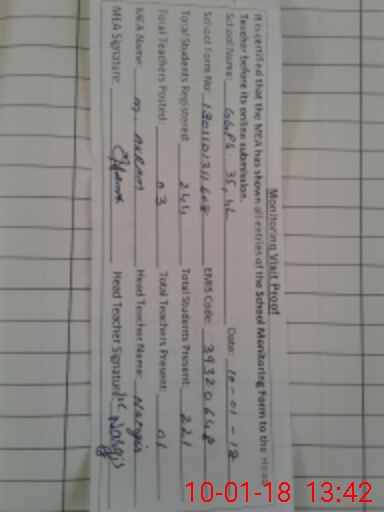 Monitoring Visit Proof
It is certified that the MEA has shown all entries of the School Monitoring Form to the Head
Teacher before its online submission.
School Name: GGPS 35, 4L Date: 10-01-18
School Form No: EMIS Code: 39320648
Total Students Registered: 244 Total Students Present: 221
Total Teachers Posted 03 Total Teachers Present: 01
MEA Name: M. Akram Head Teacher Name: Nargis
MEA Signature: Akram Head Teacher Signature: Nargis
10-01-18 13:42